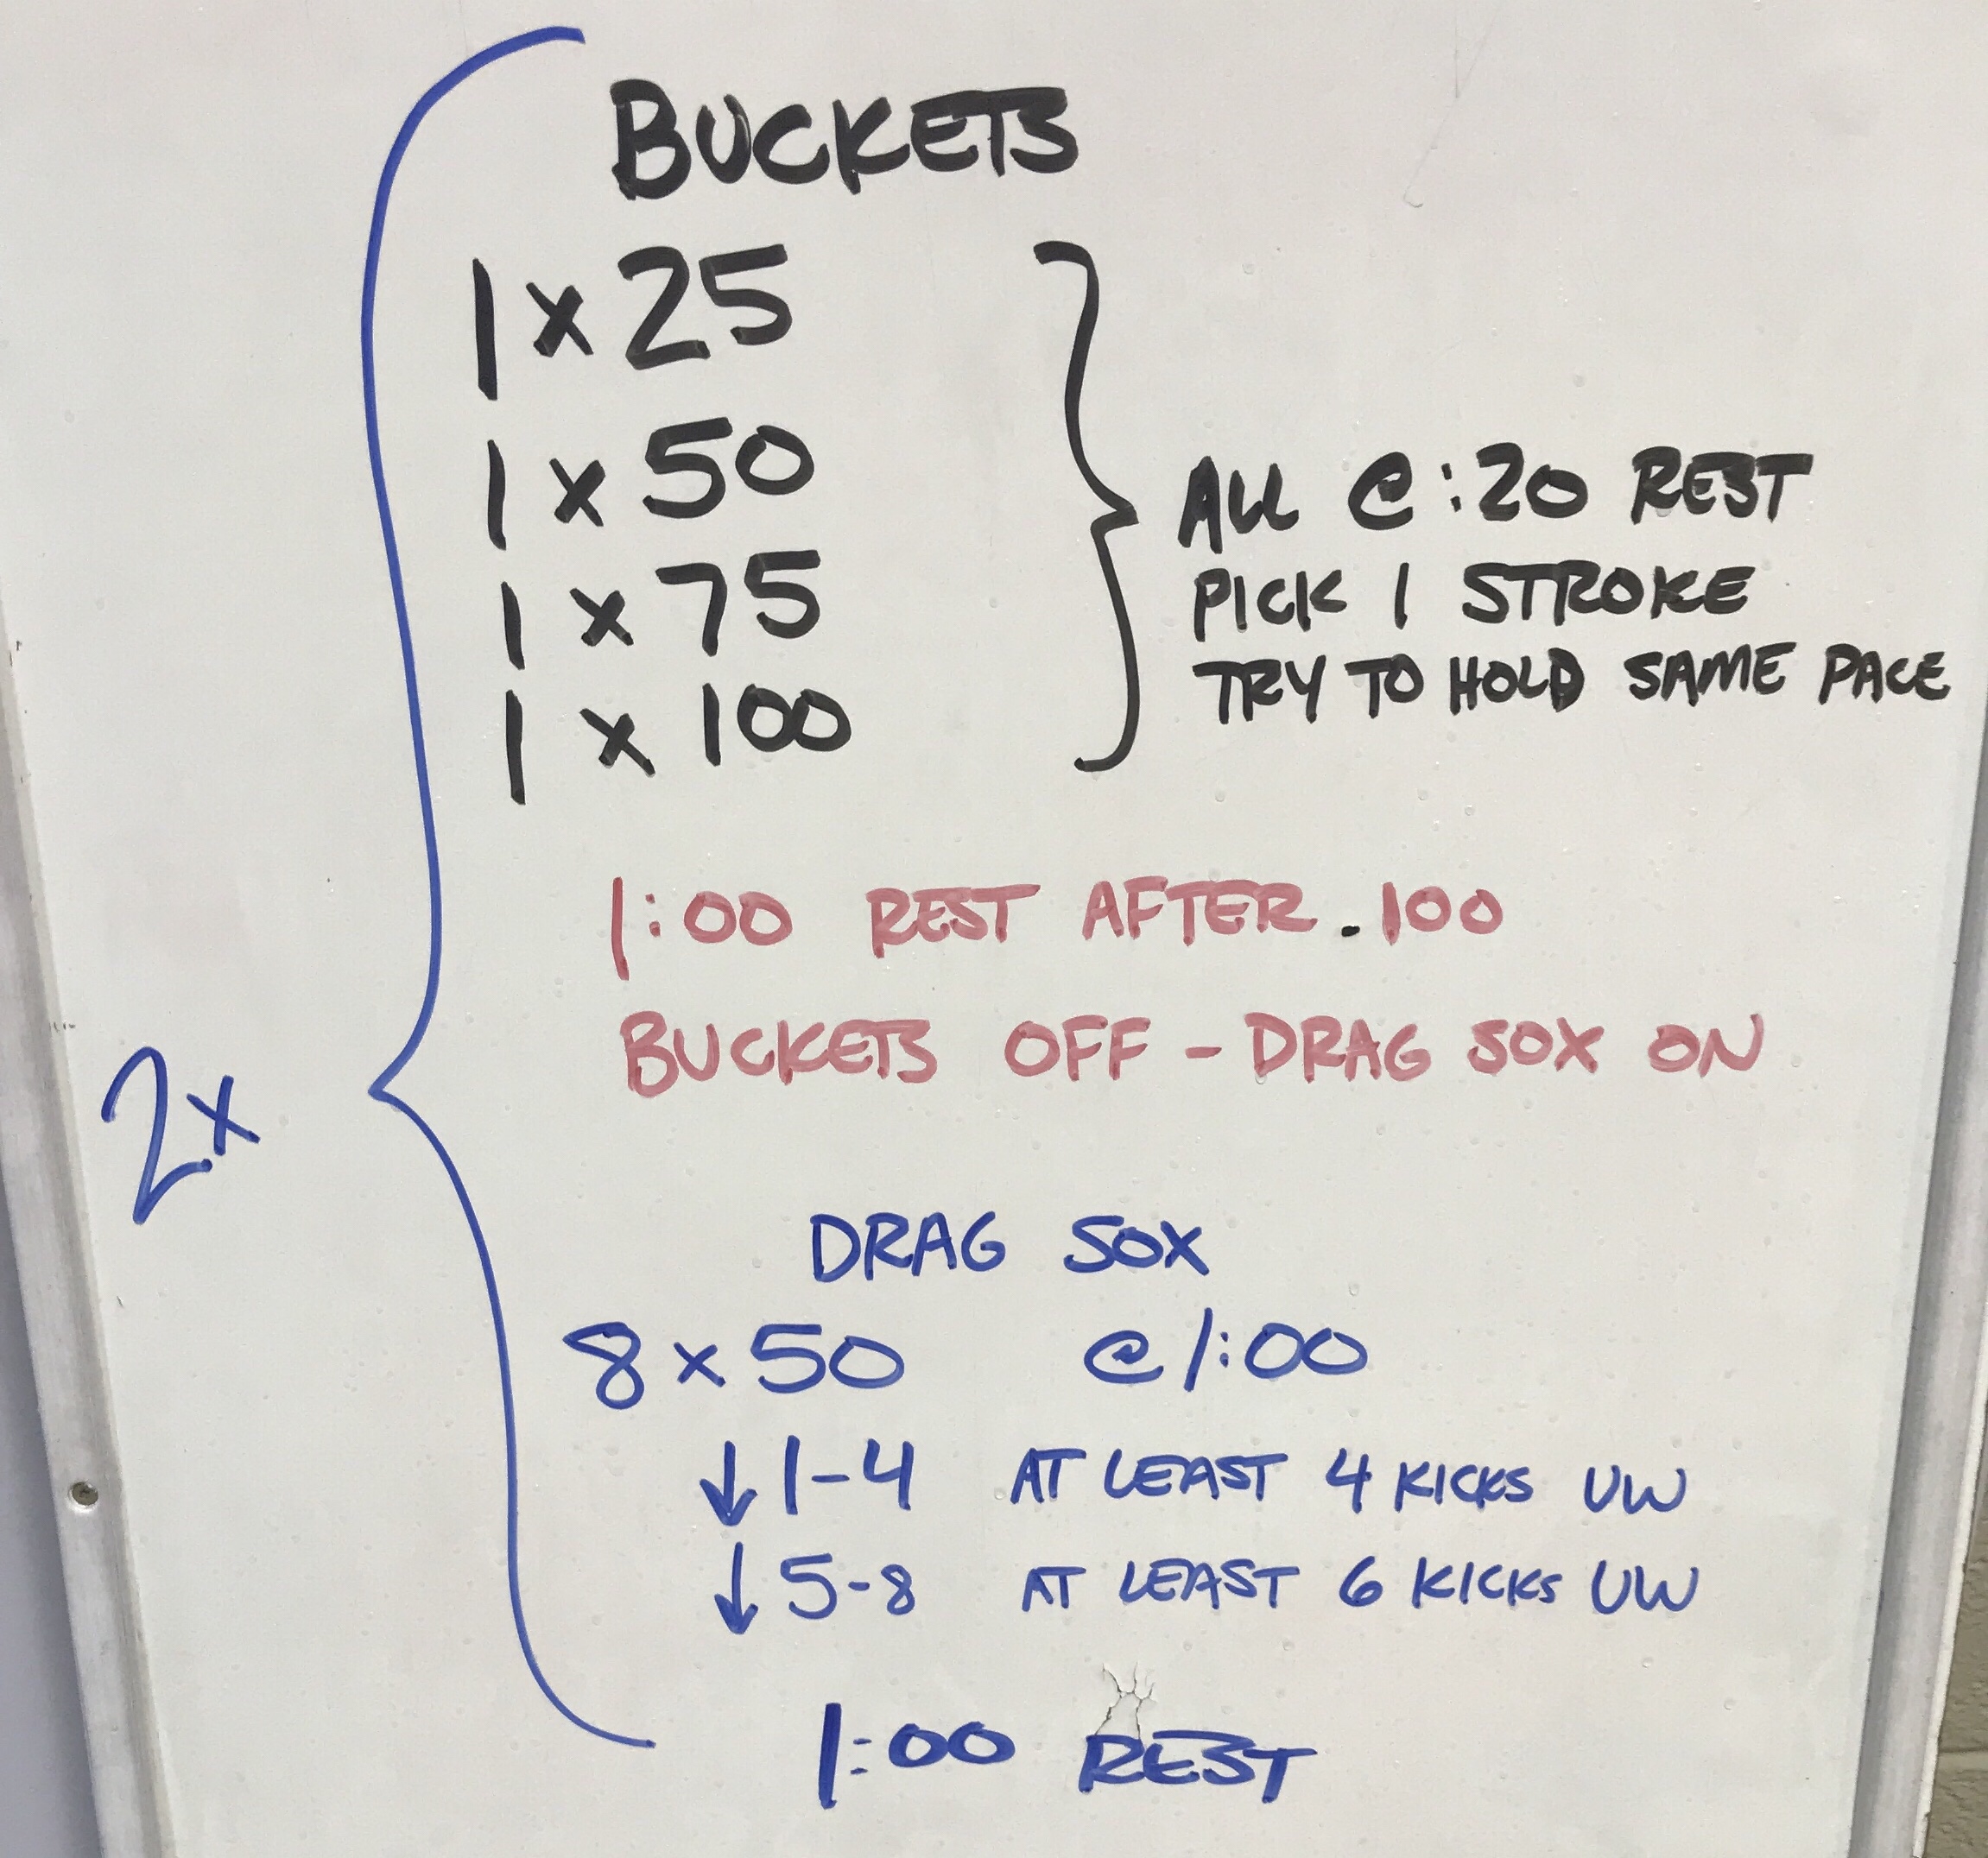 BUCKETS
1 x 25
1 x 50
1 x 75
1 x 100
ALL @ :20 REST
PICK 1 STROKE
TRY TO HOLD SAME PACE
1:00 REST AFTER . 100
BUCKETS OFF - DRAG SOX ON
2x
DRAG SOX
8 x 50 @ 1:00
↓ 1-4 AT LEAST 4 KICKS UW
↓ 5-8 AT LEAST 6 KICKS UW
1:00 REST